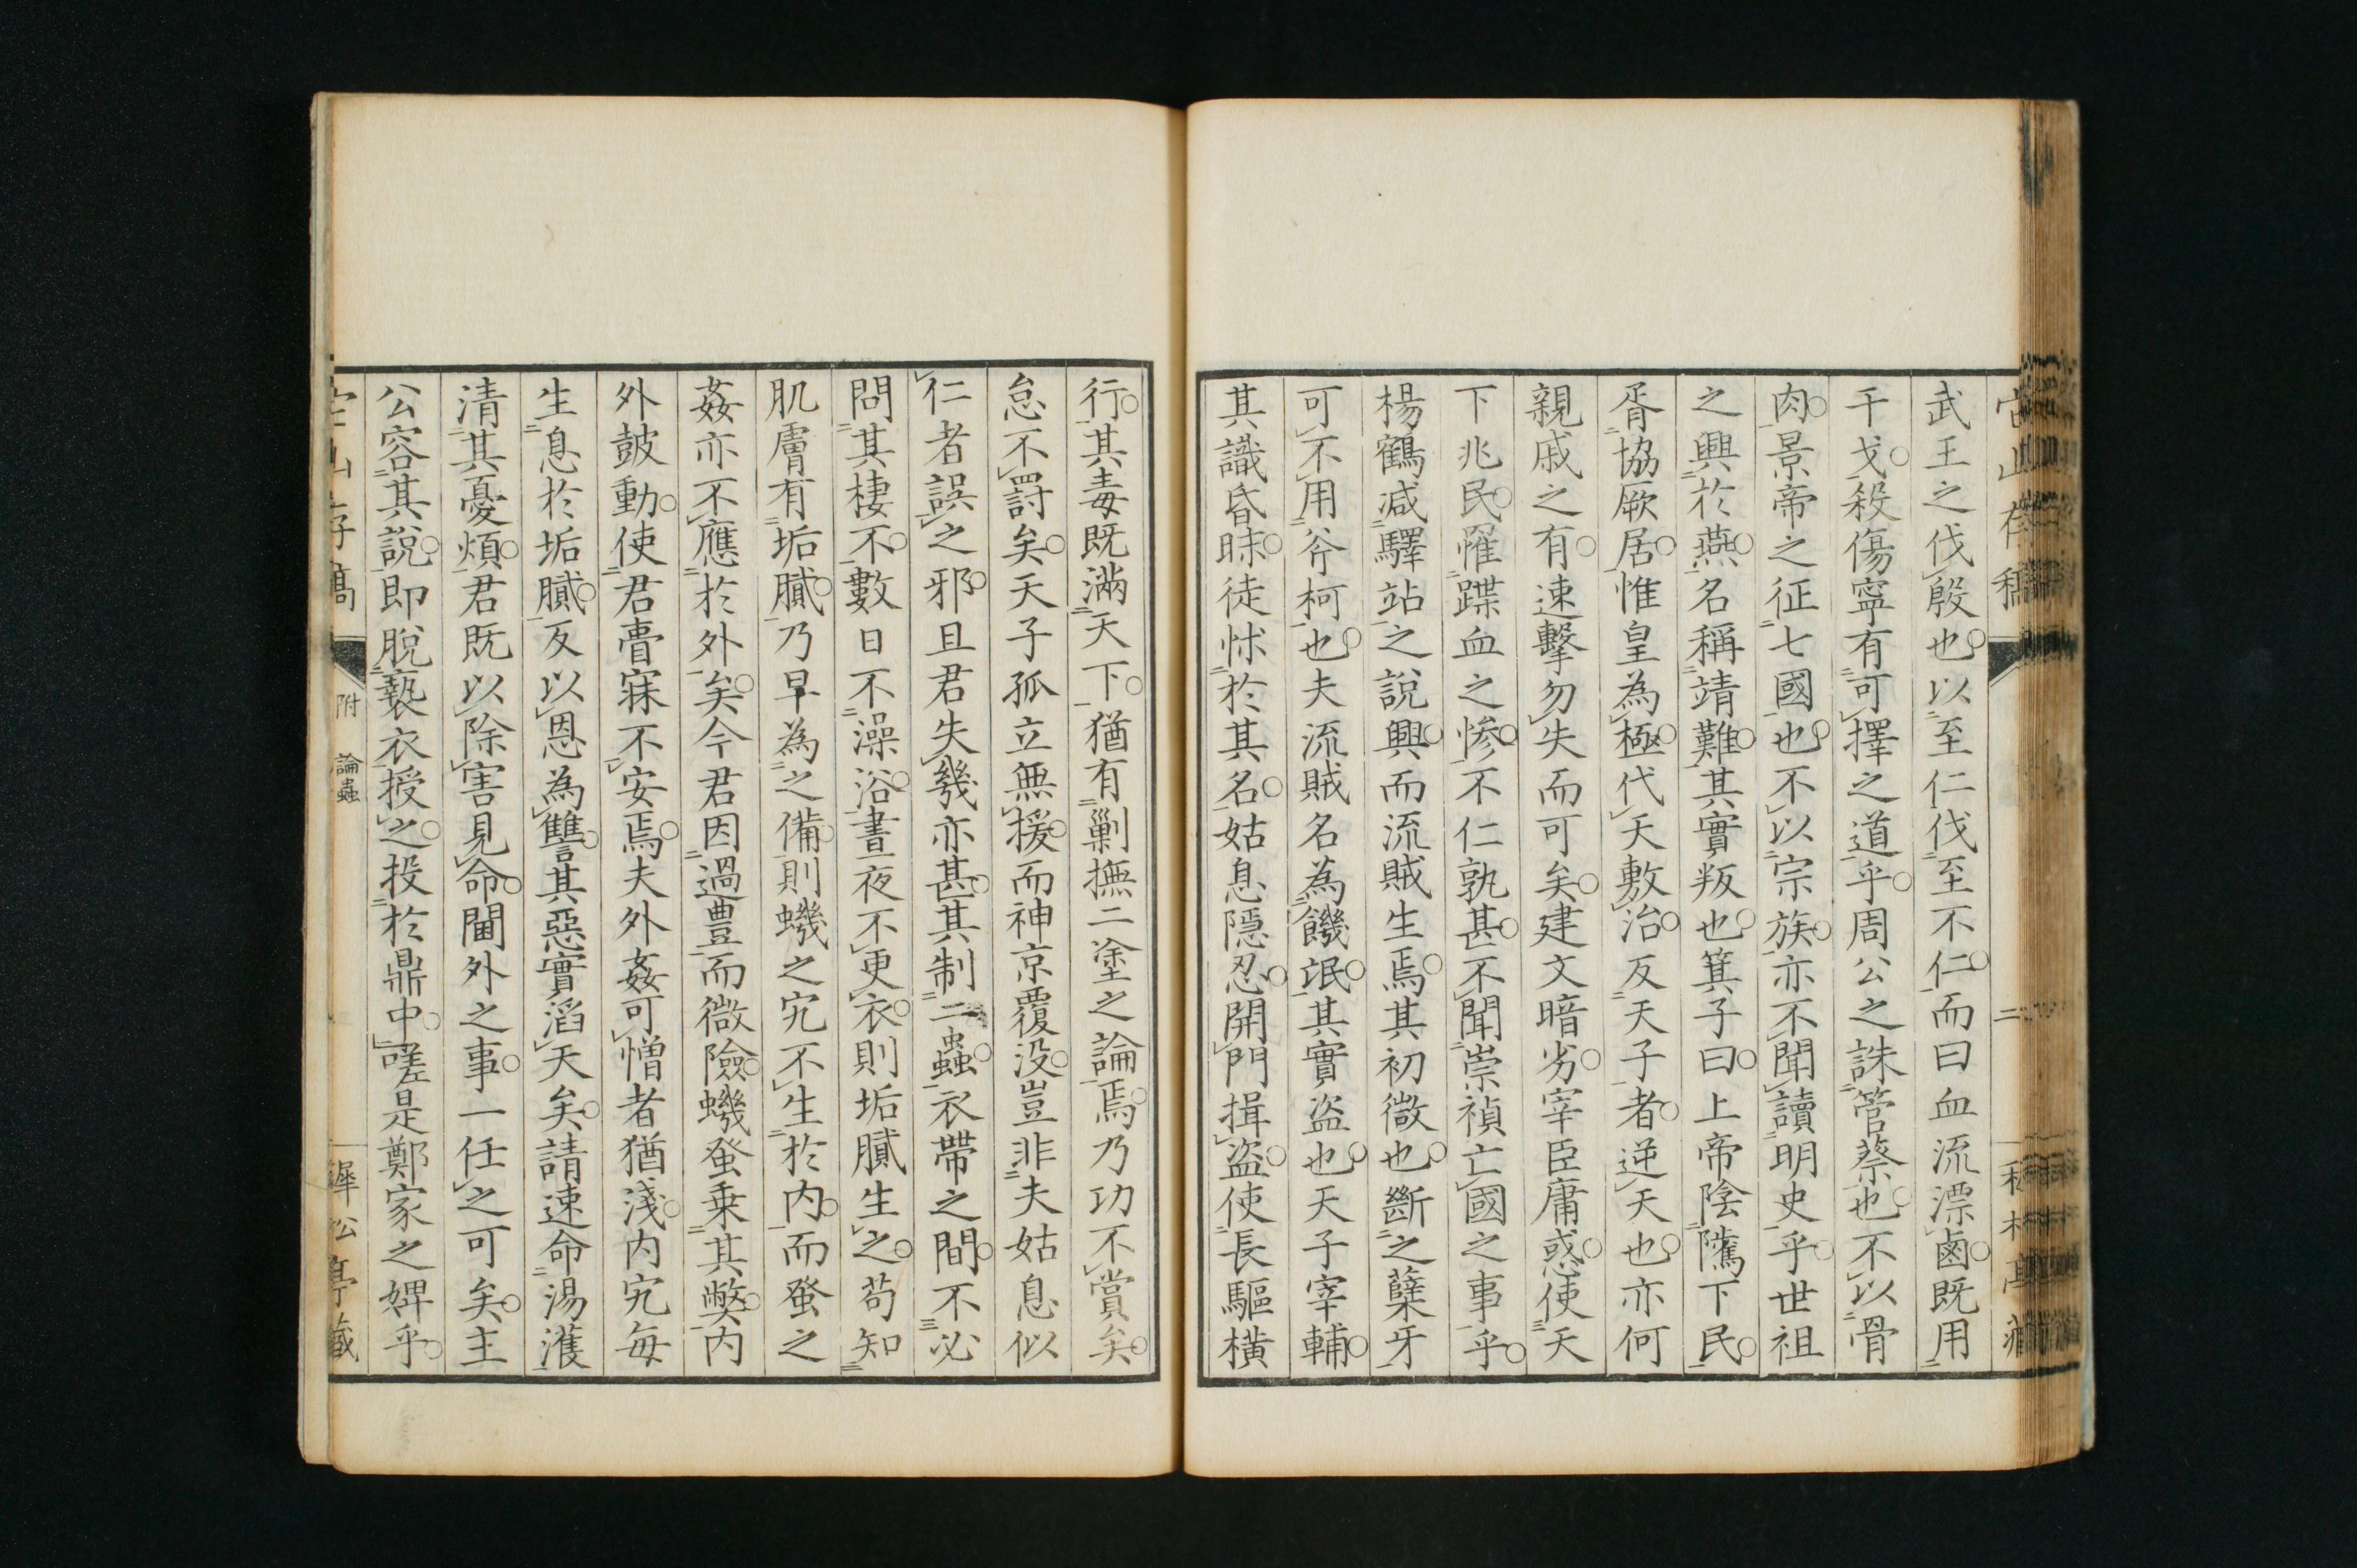 武王之伐殷也以至仁伐至不仁而曰血流漂鹵既用
干戈殺傷寧有可擇之道乎周公之誅管蔡也不以骨
肉景帝之征七國也不以宗族亦不聞讀明史乎世祖
之興於燕名稱靖難其實叛也箕子曰上帝陰隲下民
胥協厥居惟皇為極代天敷治反天子者逆天也亦何
親戚之有速擊勿失而可矣建文暗劣宰臣庸惑使天
下兆民罹蹀血之慘不仁孰甚不聞崇禎亡國之事乎
楊鶴減驛站之說興而流賊生焉其初微也斷之蘖牙
可不用斧柯也夫流賊名為饑氓其實盜也天子宰輔
其識昏昧徒怵於其名姑息隱忍開門揖盜使長驅橫
行其毒既滿天下猶有剿撫二塗之論焉乃功不賞矣
怠不罸矣天子孤立無援而神京覆没豈非夫姑息似
仁者誤之邪且君失幾亦甚其制二蟲衣帶之間不必
問其棲不數日不澡浴晝夜不更衣則垢膩生之苟知
肌膚有垢膩乃早為之備則蟣之宄不生於内而蚤之
姦亦不應於外矣今君因過豊而微險蟣蚤乗其弊内
外皷動使君瞢寐不安焉夫外姦可憎者猶淺内宄毎
生息於垢膩反以恩為讐其惡實滔天矣請速命湯濩
清其憂煩君既以除害見命閫外之事一任之可矣主
公容其說即脫褻衣授之投於鼎中嗟是鄭家之婢乎
附 論蟲
二